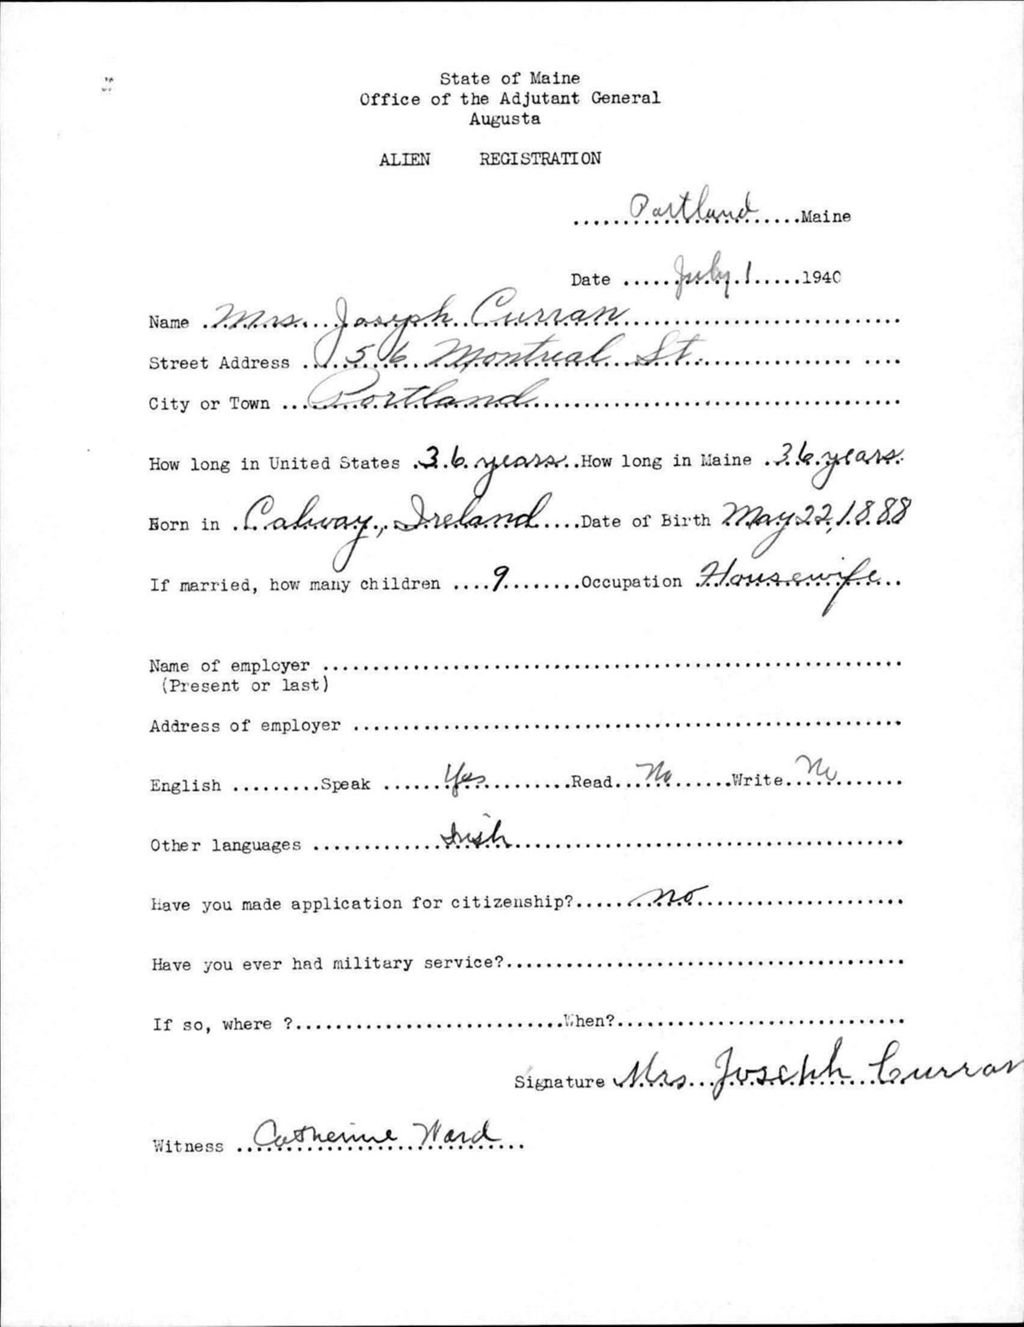 State of Maine
Office of the Adjutant General
Augusta
ALIEN REGISTRATION
......Portland.....Maine
Date ......July 1.....1940
Name .Mrs. Joseph Curran..........
Street Address ..56 Montreal St...........
City or Town ...Portland..........
How long in United States .36 years..How long in Maine .36 years.
Born in .Calway, Ireland....Date of Birth May 22, 1888
If married, how many children ....9........Occupation .Housewife...
Name of employer ..........
(Present or last)
Address of employer ..........
English .........Speak .......Yes..........Read...No.......Write..No.......
Other languages .............Irish..........
Have you made application for citizenship?.......No..........
Have you ever had military service?..........
If so, where ?..........When?..........
Signature Mrs. Joseph Curran
Witness ..Catherine Ward...